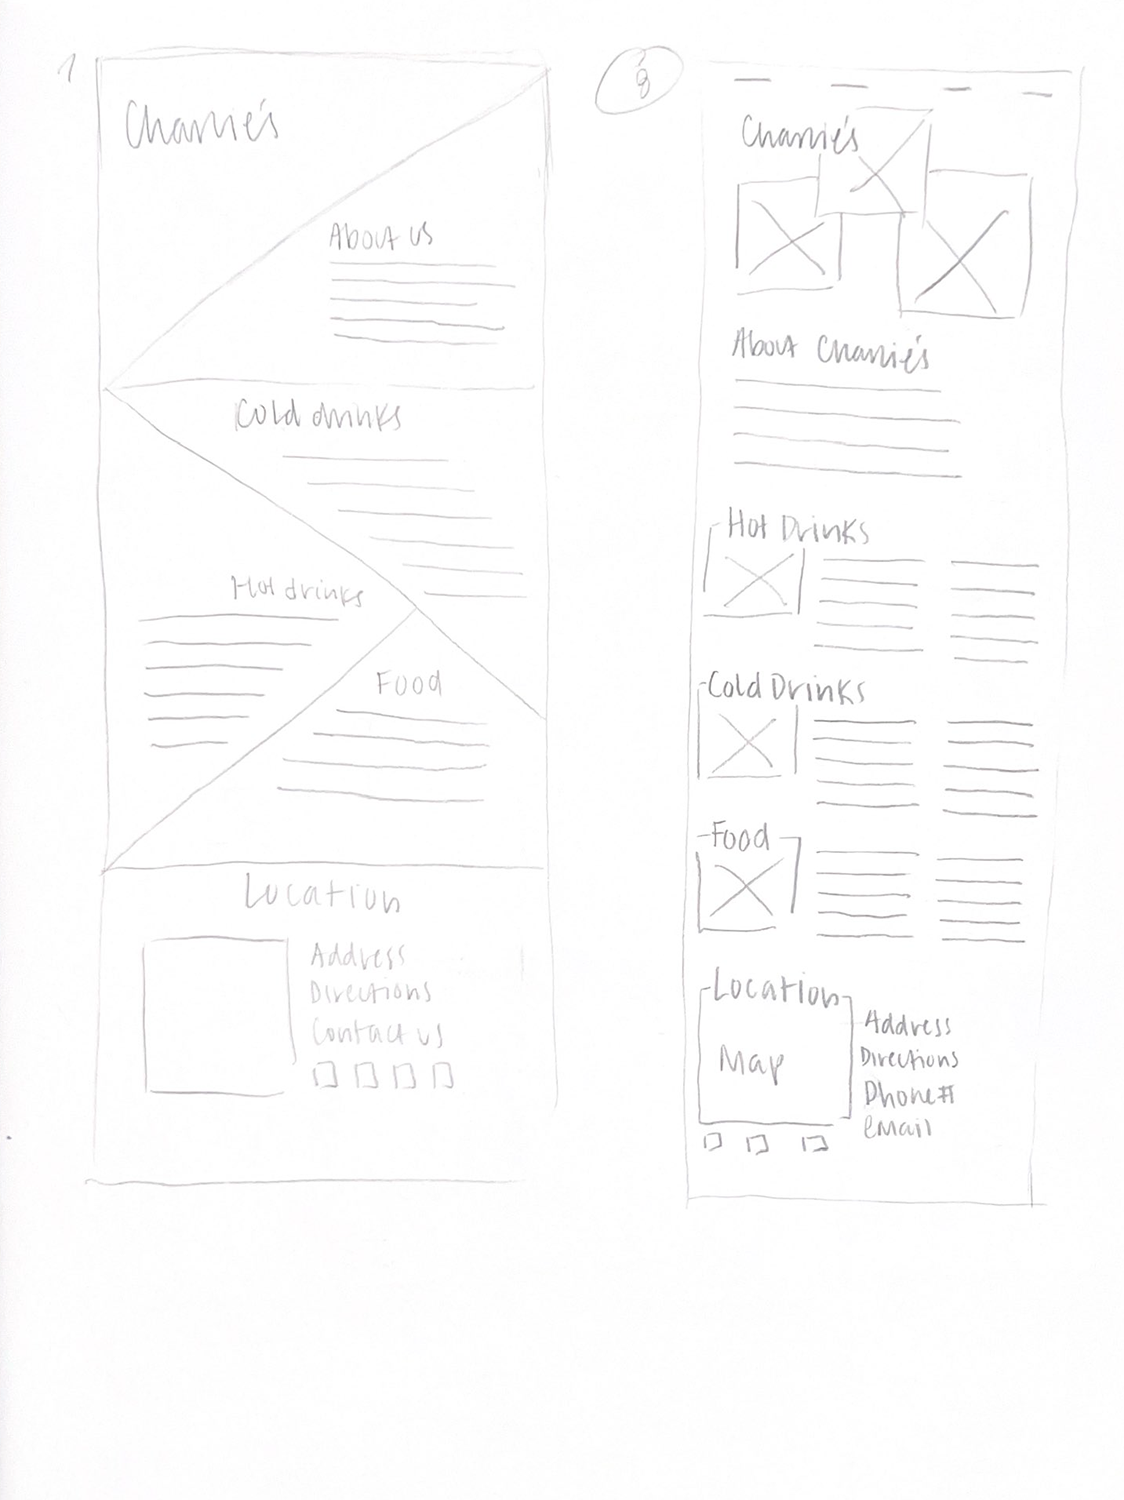 1
Charlie's
About us
Cold drinks
Hot drinks
Food
Location
Address
Directions
Contact us
8
Charlie's
About Charlie's
Hot Drinks
Cold Drinks
Food
Location
Map
Address
Directions
Phone#
email